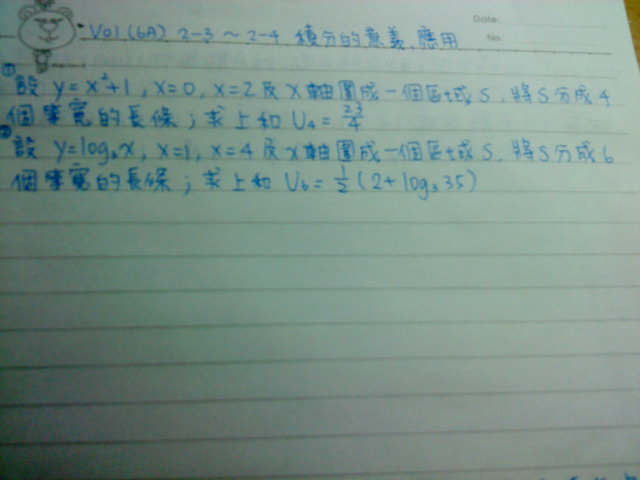 Date:
Vol (6A) 2-3 ~ 2-4 積分的意義、應用
No
① 設 y=x²+1, x=0, x=2 及 x 軸圍成一個區域 S, 將 S 分成 4
個等寬的長條; 求上和 U₄ = 23/4
② 設 y=log₂x, x=1, x=4 及 x 軸圍成一個區域 S, 將 S 分成 6
個等寬的長條; 求上和 U₆ = 1/2 (2+log₂35)